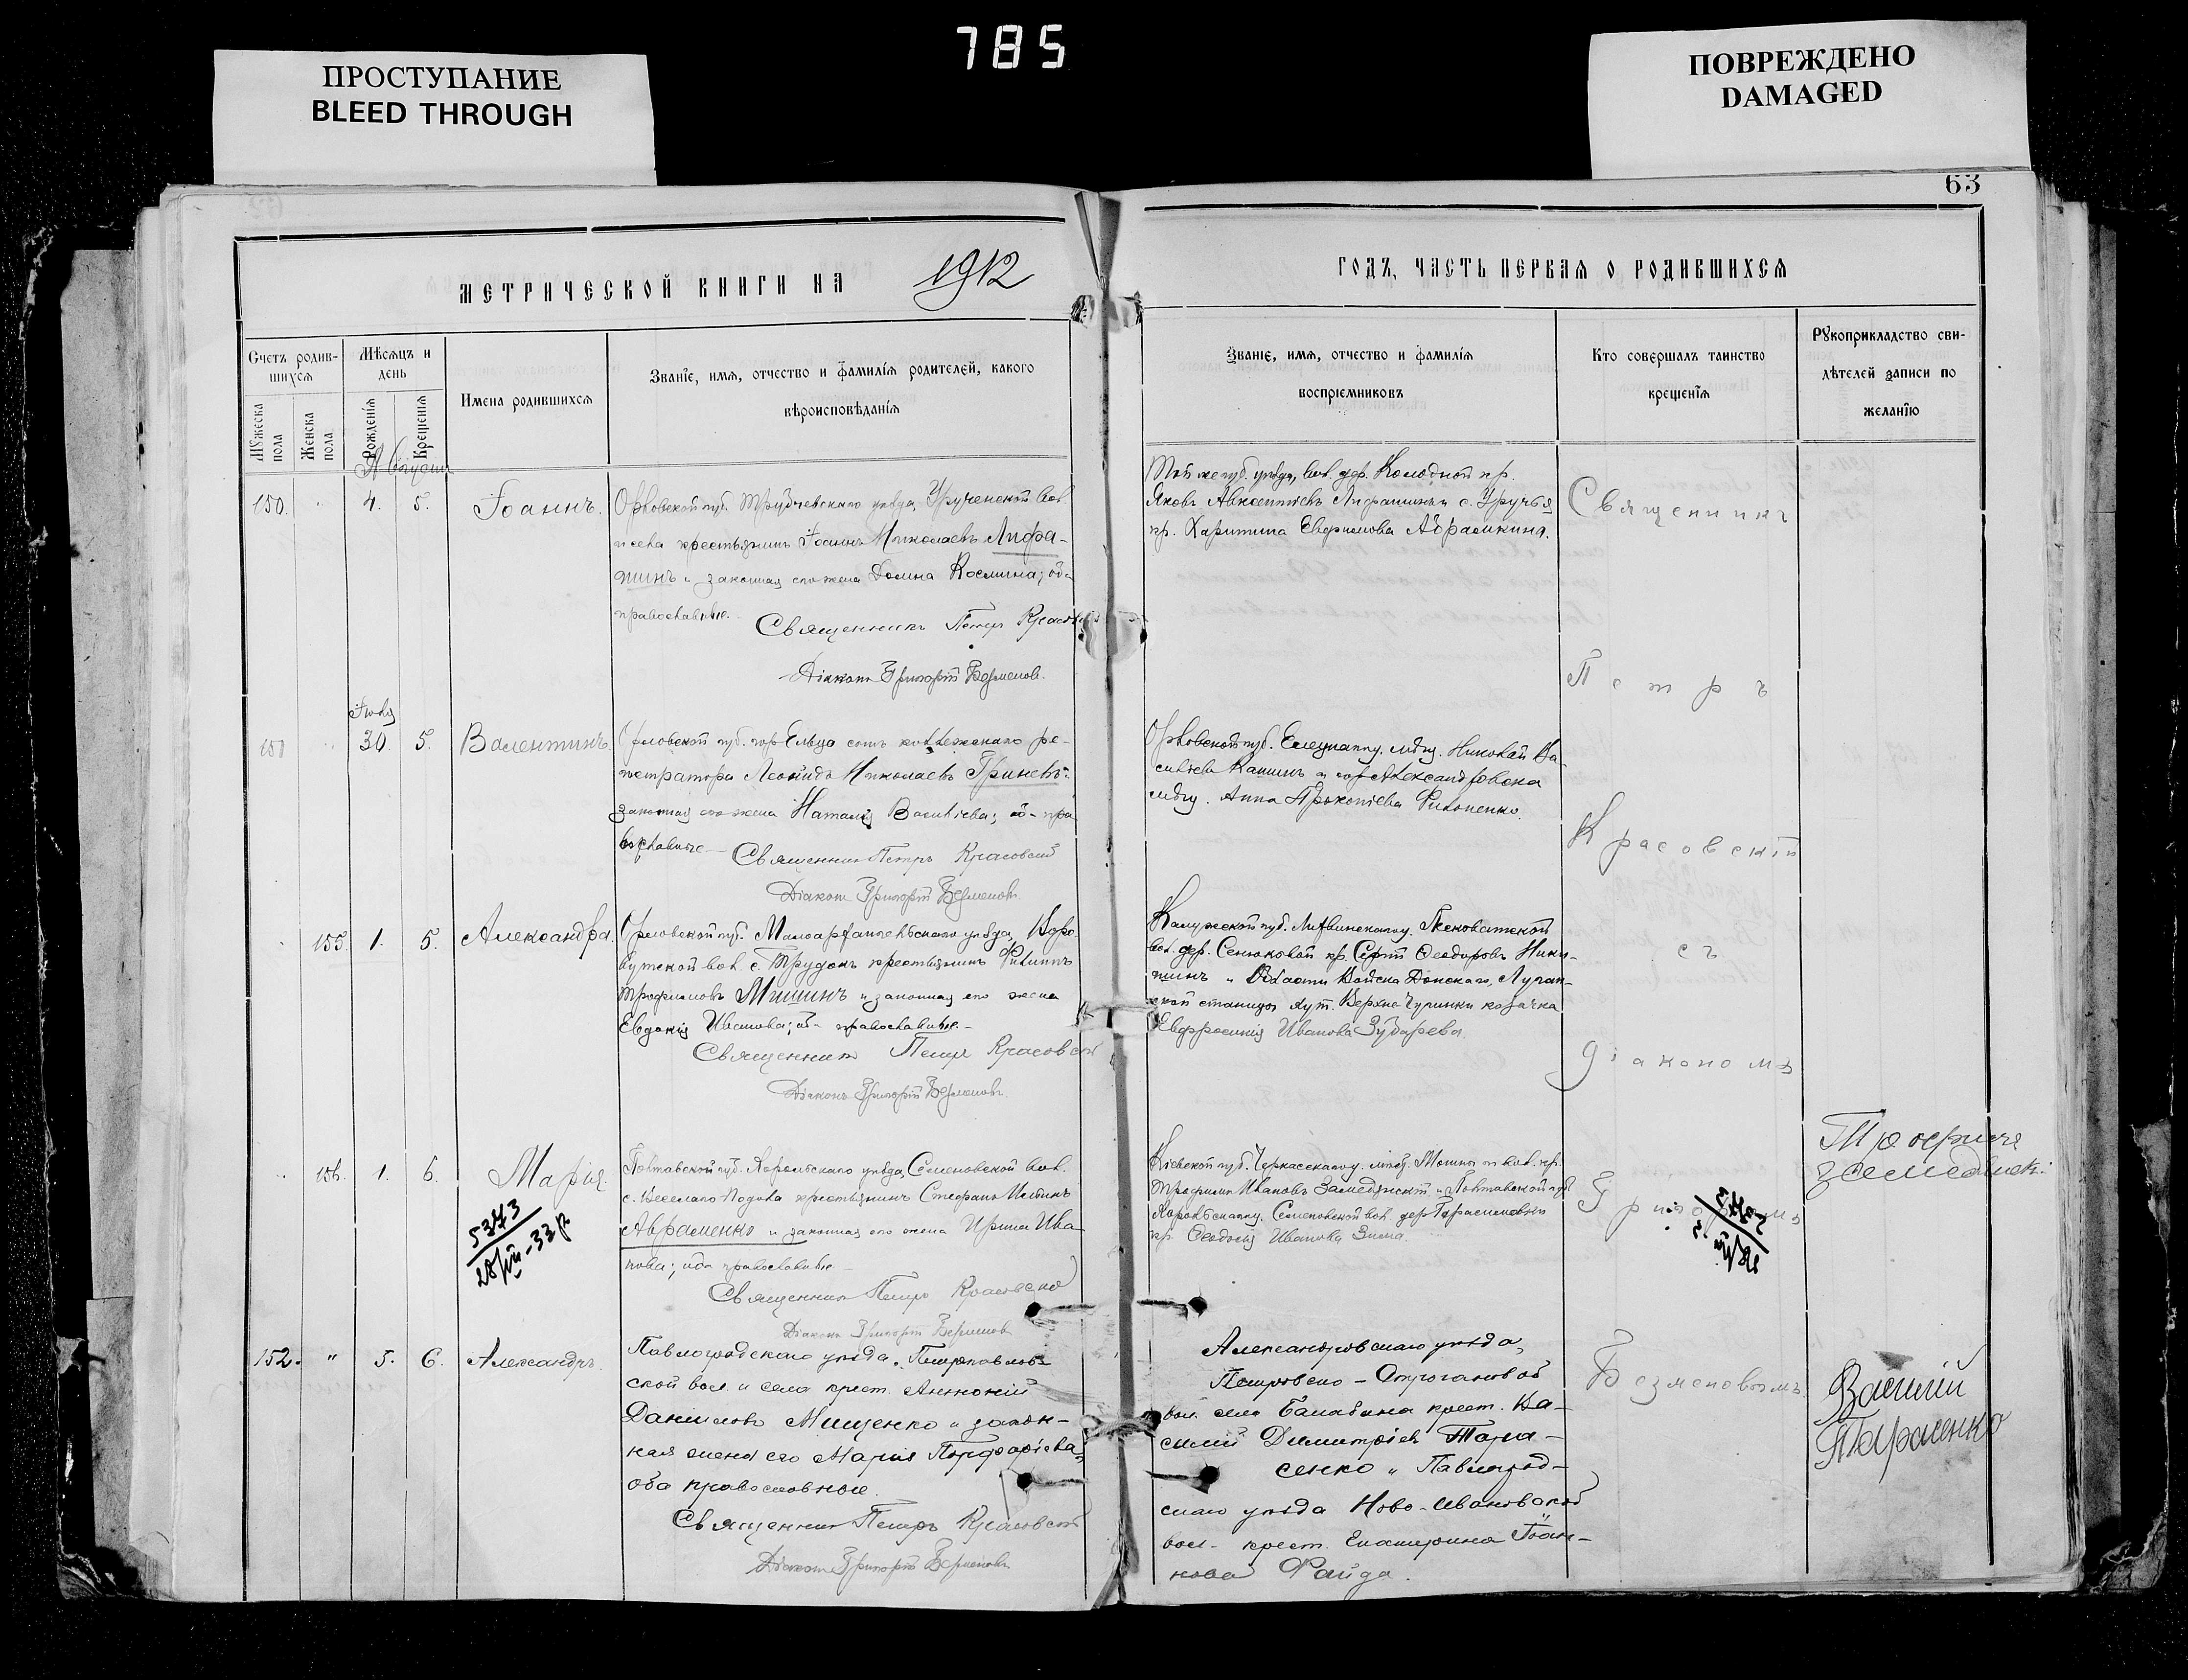 785
ПРОСТУПАНИЕ
BLEED THROUGH
ПОВРЕЖДЕНО
DAMAGED
63
МЕТРИЧЕСКОЙ КНИГИ НА 1912
ГОДЪ, ЧАСТЬ ПЕРВАЯ О РОДИВШИХСЯ
Счетъ родив-
шихся
Мѣсяцъ и
день
Имена родившихся
Званіе, имя, отчество и фамилія родителей, какого
вѣроисповѣданія
Мужеска
пола
Женска
пола
Рожденія
Крещенія
Званіе, имя, отчество и фамилія
воспріемниковъ
Кто совершалъ таинство
крещенія
Рукоприкладство сви-
дѣтелей записи по
желанію
Августъ
150. 4. 5. Іоаннъ.
Орловской губ. Трубчевскаго уѣзда, Урученской вол.
и села крестьянинъ Іоаннъ Николаевъ Лифа-
шинъ и законная его жена Домна Космина; оба
православные.
Священникъ Петръ Красов
Діаконъ Григорій Безменов.
Той же губ. уѣзда, вол. дер. Колодной кр.
Яковъ Авксентіевъ Лифашинъ и с. Уручья
кр. Харитина Евфимова Абрамкина.
Іюля
30. 5. Валентинъ.
Орловской губ. гор. Ельца сынъ коллежскаго ре-
гистратора Леонидъ Николаевъ Гриневъ и
законная его жена Наталія Васильева; об. пра
вославные
Священникъ Петръ Красовскій
Діаконъ Григорій Безменовъ.
Орловской губ. Елецкаго у. мѣщ. Николай Ва-
сильевъ Капинъ и гор. Александровска
мѣщ. Анна Прокопіева Филоненко.
155. 1. 5. Александра.
Орловской губ. Малоархангельскаго уѣзда,
вол. с. Трудокъ крестьянинъ Филиппъ
Трофимовъ Мишинъ и законная его жена
Евдокія Иванова; об. православные.
Священникъ Петръ Красовскій
Діаконъ Григорій Безменовъ
Калужской губ. у. Песковатской
вол. дер. Сенюковой кр. Сергій Ѳеодоровъ Ники-
шинъ и Области Войска Донскаго, Луган-
ской станицы хут. Верхне Чугинки козачка
Евфросинія Иванова Зубарева.
156. 1. 6. Марія.
Полтавской губ. Хорольскаго уѣзда, Семеновской вол.
с. Веселаго Подола крестьянинъ Стефанъ
Авраменко и законная его жена Ирина Ива
нова; оба православные
Священникъ Петръ Красовскій
Діаконъ Григорій Безменовъ
5373
28/VII-33 р
Кіевской губ. Черкасскаго у. мѣст. Мошны и вол. кр.
Трофимъ Ивановъ Замедянскій и Полтавской губ.
Хорольскаго у. Семеновской вол. дер.
кр. Ѳеодосія Иванова Зима.
152. " 5. 6. Александръ.
Павлоградскаго уѣзда, Петропавлов-
ской вол. и села крест. Антоній
Даніиловъ Мищенко и закон-
ная жена его Марія Порфиріева
оба православные.
Священникъ Петръ Красовскій
Діаконъ Григорій Безменовъ
Александровскаго уѣзда,
Петровско-Строгановой
вол. села Балабина крест. Ва-
силій Димитріевъ Тара-
сенко и Павлоград-
скаго уѣзда Ново-Ивановской
вол. крест. Екатерина Іоан-
нова Файда.
Священникъ
Петръ
Красовскій
съ
діакономъ
Григоріемъ
Безменовымъ
Трофимъ
Василій
Тарасенко